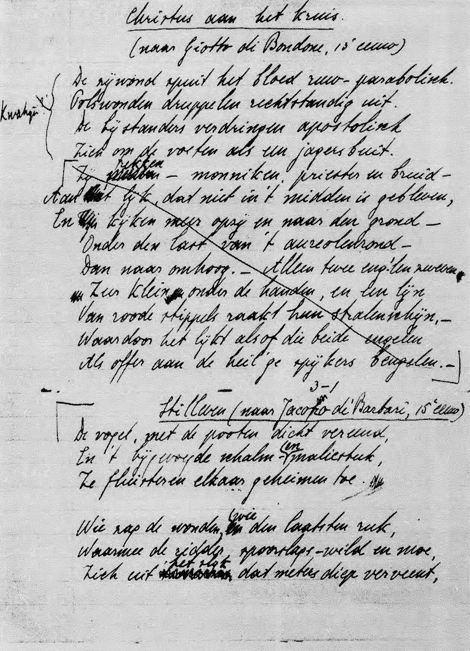 Christus aan het kruis.
(naar Giotto di Bondone, 15e eeuw)
De zijwond spuit het bloed ruw-parabolisch.
Polswonden druppelen rechtstandig uit.
De bijstanders verdringen apostolisch
Zich om de voeten als een jagersbuit.
Zij rekken – monniken, priester en bruid –
Aan het lijk, dat niet in 't midden is gebleven,
En kijken meer opzij en naar den grond –
Onder den last van 't aureolenrond –
Dan naar omhoog. – Alleen twee eng'len zweven
Zeer klein onder de handen, en een lijn
Van roode stippels raakt hun stralenschijn, –
Waardoor het lijkt alsof die beide engelen
Als offer aan de heil'ge spijkers bengelen. –
3-1
Stilleven (naar Jacopo di Barbari, 15e eeuw)
De vogel, met de pooten dicht vereend,
En 't bijgevoegde schalm- en maliestuk,
Ze fluisteren elkaar geheimen toe.
Wie zag de wonden, wie den laatsten ruk,
Waarmee de ridder, spoorslags-wild en moe,
Zich uit het slijk dat meters diep verveent,